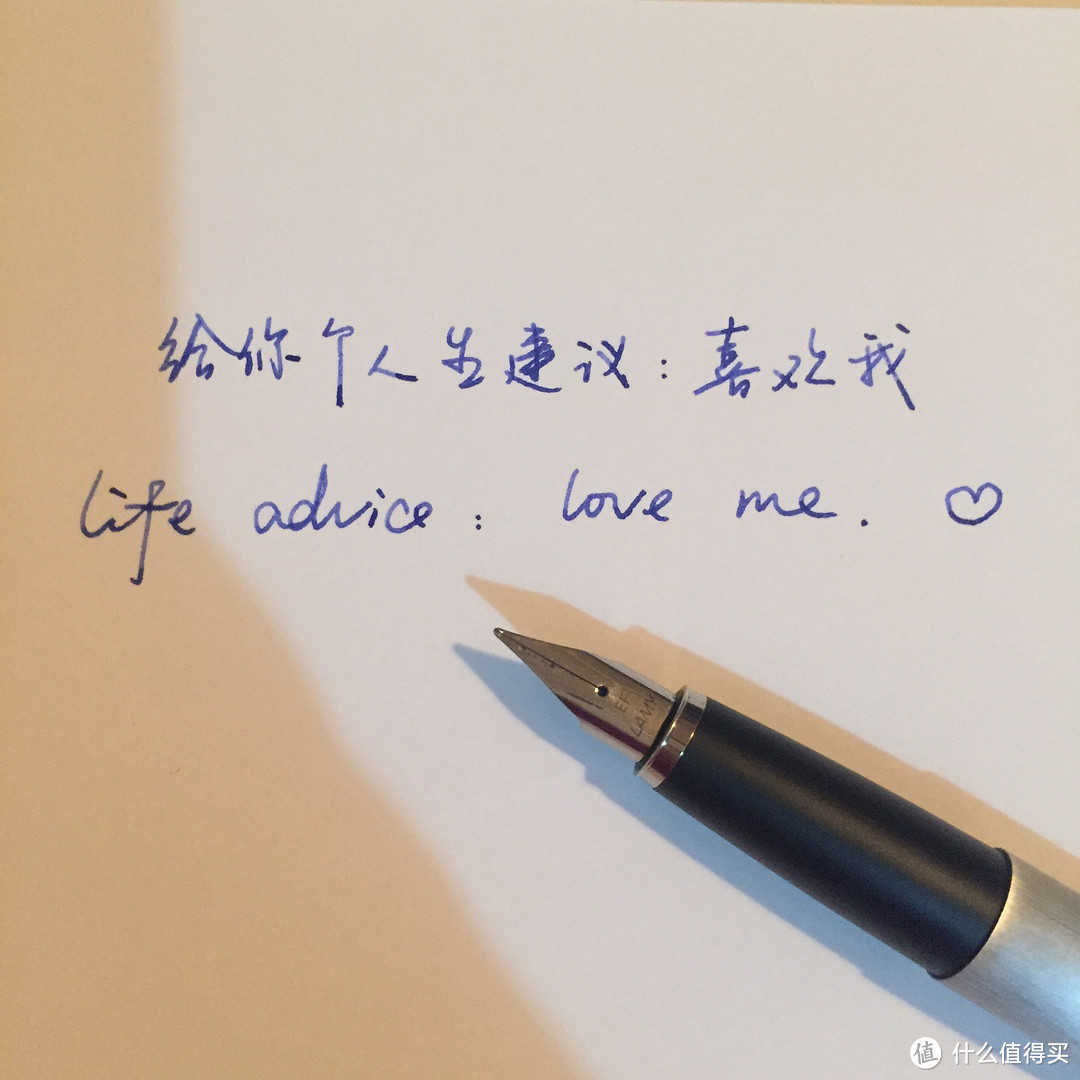 给你个人生建议：喜欢我
life advice : love me. ♡
EF
LAMY
值 什么值得买